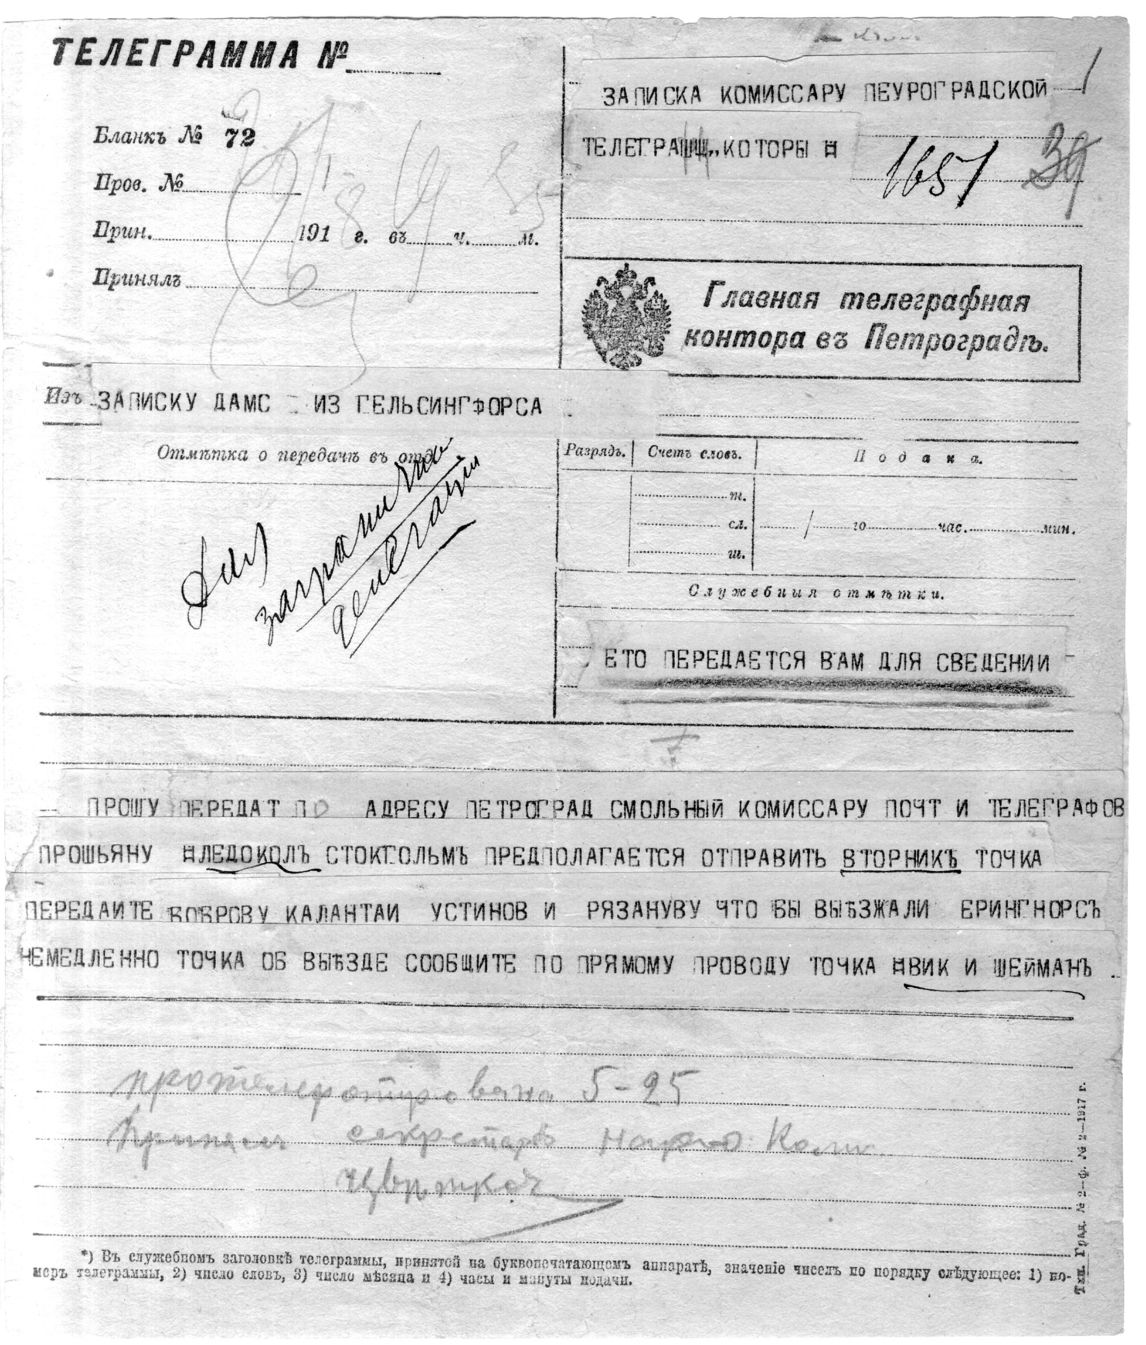 ТЕЛЕГРАММА №
Бланкъ № 72
Пров. №
Прин. 1918 г. въ ч. м.
Принялъ
ЗАПИСКА КОМИССАРУ ПЕУРОГРАДСКОЙ
ТЕЛЕГРА КОТОРЫ
1651 39
Главная телеграфная
контора въ Петроградѣ.
Изъ ЗАПИСКУ ДАМС ИЗ ГЕЛЬСИНГФОРСА
Отмѣтка о передачѣ въ отд
Разрядъ. Счетъ словъ. Подача.
т.
сл. / го час. мин.
ш.
Служебныя отмѣтки.
заграничная
делегация
ЕТО ПЕРЕДАЕТСЯ ВАМ ДЛЯ СВЕДЕНИИ
ПРОШГУ ПЕРЕДАТ ПО АДРЕСУ ПЕТРОГРАД СМОЛЬНЫЙ КОМИССАРУ ПОЧТ И ТЕЛЕГРАФОВ
ПРОШЬЯНУ ЛЕДОКОЛЪ СТОКГОЛЬМЪ ПРЕДПОЛАГАЕТСЯ ОТПРАВИТЬ ВТОРНИКЪ ТОЧКА
ПЕРЕДАИТЕ БОБРОВУ КАЛАНТАИ УСТИНОВ И РЯЗАНУВУ ЧТО БЫ ВЫЪЗЖАЛИ ЕРИНГНОРСЪ
НЕМЕДЛЕННО ТОЧКА ОБ ВЫЪЗДЕ СООБЩИТЕ ПО ПРЯМОМУ ПРОВОДУ ТОЧКА НВИК И ШЕЙМАНЪ
протелефонирована 5-25
Принял секретарь
*) Въ служебномъ заголовкѣ телеграммы, принятой на буквопечатающемъ аппаратѣ, значеніе чиселъ по порядку слѣдующее: 1) но-
меръ телеграммы, 2) число словъ, 3) число мѣсяца и 4) часы и минуты подачи.
Тип. Град. № 2—ф. № 2—1917 г.